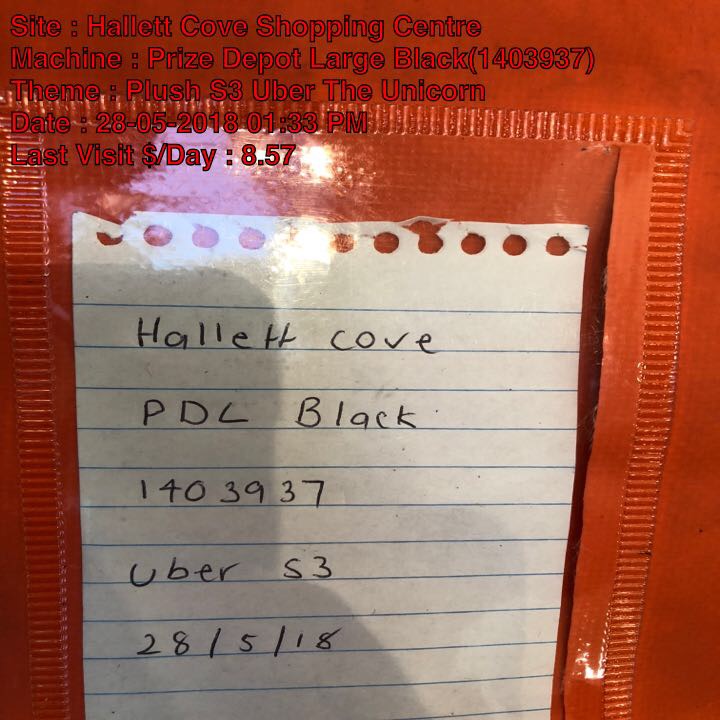 Site : Hallett Cove Shopping Centre
Machine : Prize Depot Large Black(1403937)
Theme : Plush S3 Uber The Unicorn
Date : 28-05-2018 01:33 PM
Last Visit $/Day : 8.57
Hallett cove
PDL Black
1403937
Uber S3
28/5/18